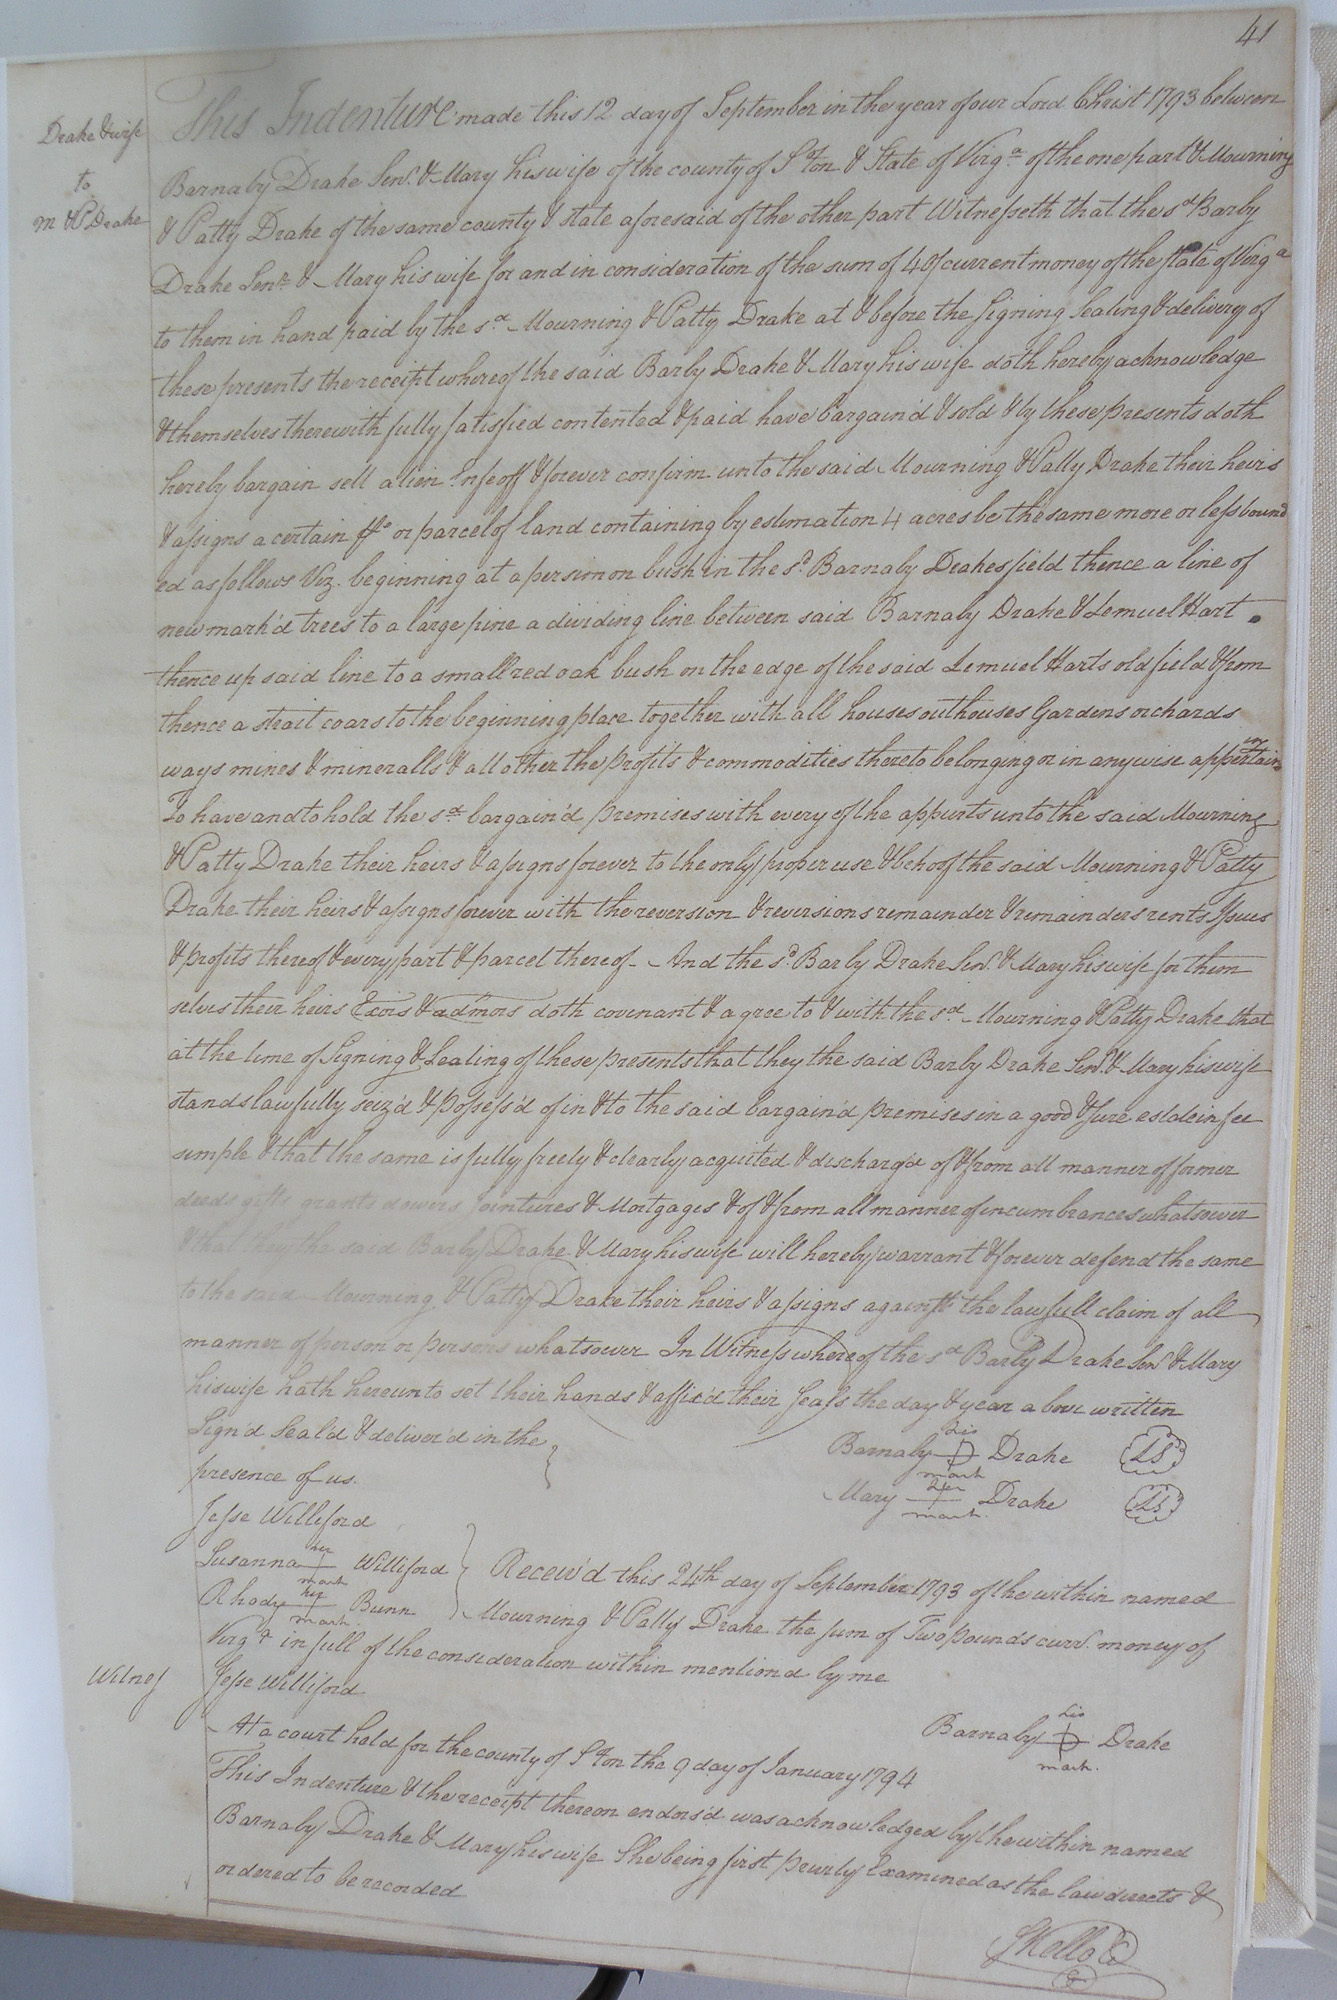 41
Drake & wife
to
M & P Drake
This Indenture made this 12 day of September in the year of our Lord Christ 1793 between
Barnaby Drake Senr. & Mary his wife of the county of S°ton & State of Virga of the one part & Mourning
& Patty Drake of the same county & state aforesaid of the other part Witnesseth that the sd Barby
Drake Senr. & Mary his wife for and in consideration of the sum of 40/ current money of the state of Virga
to them in hand paid by the sd Mourning & Patty Drake at & before the signing sealing & delivery of
these presents the receipt whereof the said Barby Drake & Mary his wife doth hereby acknowledge
& themselves therewith fully satisfied contented & paid have bargain'd & sold & by these presents doth
hereby bargain sell alien Enfeoff & forever confirm unto the said Mourning & Patty Drake their heirs
& assigns a certain or parcel of land containing by estimation 4 acres be the same more or less bound
ed as follows Viz. beginning at a persimon bush in the sd. Barnaby Drakes field thence a line of
new mark'd trees to a large pine a dividing line between said Barnaby Drake & Lemuel Hart
thence up said line to a small red oak bush on the edge of the said Lemuel Harts old field & from
thence a strait coars to the beginning place together with all houses outhouses Gardens orchards
ways mines & mineralls & all other the profits & commodities thereto belonging or in anywise appertaing
To have and to hold the sd bargain'd premises with every of the appurts unto the said Mourning
& Patty Drake their heirs & assigns forever to the only proper use & behoof the said Mourning & Patty
Drake their heirs & assigns forever with the reversion & reversions remainder & remainders rents Issues
& profits thereof & every part & parcel thereof - And the sd. Barby Drake Senr. & Mary his wife for them
selves their heirs Exors & admors doth covenant & agree to & with the sd Mourning & Patty Drake that
at the time of Signing & Sealing of these presents that they the said Barby Drake Senr. & Mary his wife
stands lawfully seiz'd & possess'd of in & to the said bargain'd premises in a good & sure estate in fee
simple & that the same is fully freely & clearly acquited & discharg'd of & from all manner of former
deeds gifts grants dowers jointures & Mortgages & of & from all manner of incumbrances whatsoever
& that they the said Barby Drake & Mary his wife will hereby warrant & forever defend the same
to the said Mourning & Patty Drake their heirs & assigns against the lawfull claim of all
manner of person or persons whatsoever In Witness whereof the sd Barby Drake Senr & Mary
his wife hath hereunto set their hands & affix'd their seals the day & year above written
Sign'd Seal'd & deliver'd in the
presence of us.
Barnaby his mark Drake LS
Mary her mark Drake LS
Jesse Williford
Susanna her mark Williford
Rhody her mark Bunn
Receiv'd this 24th day of September 1793 of the within named
Mourning & Patty Drake the sum of Two pounds curr. money of
Virga in full of the consideration within mentiond by me
Witness
Jesse Williford
Barnaby his mark Drake
At a court held for the county of S°ton the 9 day of January 1794
This Indenture & the receipt thereon endors'd was acknowledged by the within named
Barnaby Drake & Mary his wife She being first privily Examined as the law directs &
ordered to be recorded
S Kello C